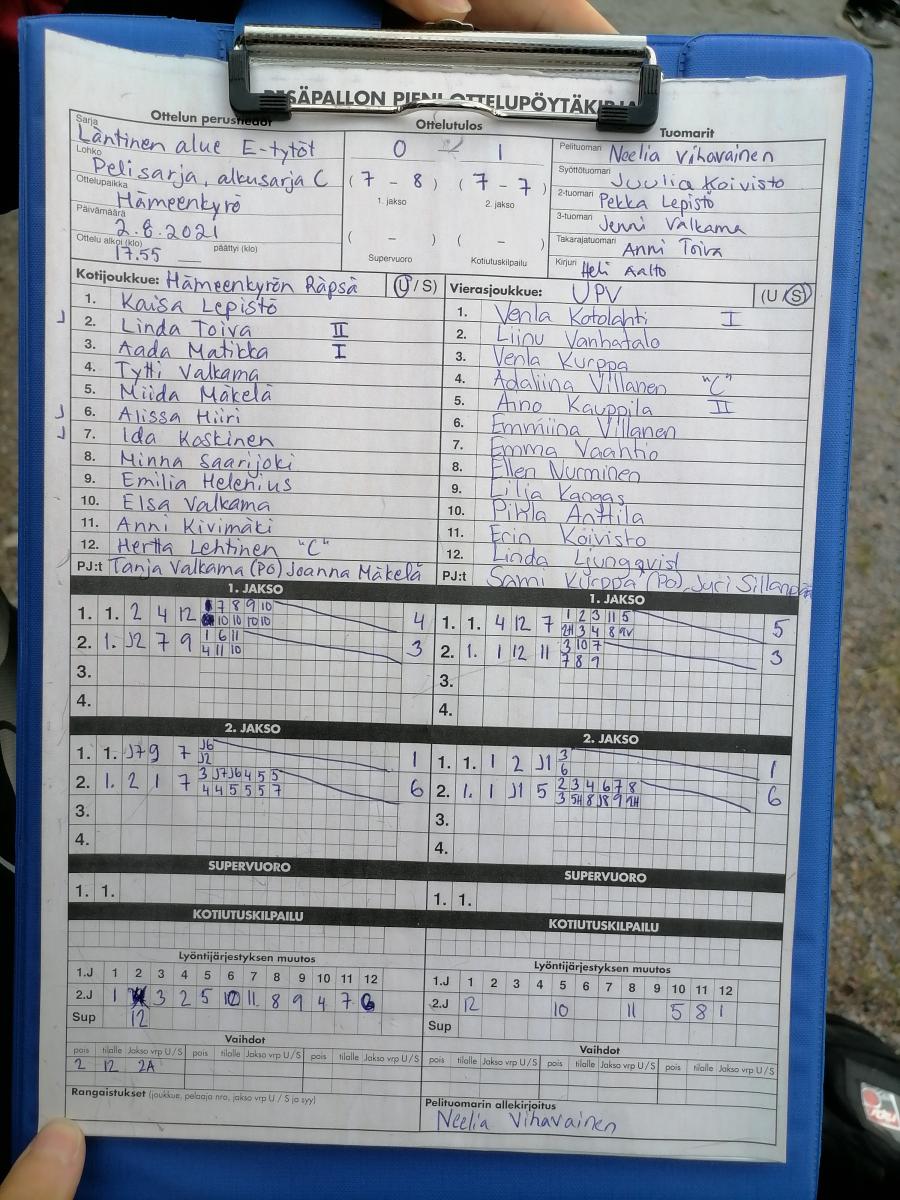 PESÄPALLON PIENI OTTELUPÖYTÄKIRJA
Ottelun perustiedot
Ottelutulos
Tuomarit
Sarja Läntinen alue E-tytöt
Lohko Pelisarja, alkusarja C
Ottelupaikka Hämeenkyrö
Päivämäärä 2.8.2021
Ottelu alkoi (klo) 17.55 päättyi (klo)
0 - 1
(7 - 8) (7 - 7)
1. jakso 2. jakso
( - ) ( - )
Supervuoro Kotiutuskilpailu
Pelituomari Neelia Vihavainen
Syöttötuomari Juulia Koivisto
2-tuomari Pekka Lepistö
3-tuomari Jenni Valkama
Takarajatuomari Anni Toiva
Kirjuri Heli Aalto
Kotijoukkue: Hämeenkyrön Räpsä (U / S)
1. Kaisa Lepistö
2. Linda Toiva II
3. Aada Matikka I
4. Tytti Valkama
5. Miida Mäkelä
6. Alissa Hiiri
7. Ida Koskinen
8. Minna Saarijoki
9. Emilia Helenius
10. Elsa Valkama
11. Anni Kivimäki
12. Hertta Lehtinen "C"
PJ:t Tanja Valkama (PO) Joanna Mäkelä
Vierasjoukkue: UPV (U / S)
1. Venla Kotolahti I
2. Liinu Vanhatalo
3. Venla Kurppa
4. Adaliina Villanen "C"
5. Aino Kauppila II
6. Emmiina Villanen
7. Emma Vaahtio
8. Ellen Nurminen
9. Lilja Kangas
10. Pihla Anttila
11. Erin Koivisto
12. Linda Ljungqvist
PJ:t Sami Kurppa (PO) Juri Sillanpää
1. JAKSO
1. 1. 2 4 12 7 8 9 10 4
10 10 10
2. 1. J2 7 9 1 6 11 3
4 11 10
3.
4.
1. JAKSO
1. 1. 4 12 7 1 2 3 11 5 5
2H 3 4 8 9V
2. 1. 1 12 11 3 10 7 3
7 8 9
3.
4.
2. JAKSO
1. 1. J7 9 7 J6 1
J2
2. 1. 2 1 7 3 J7 J6 4 5 5 6
4 4 5 5 5 7
3.
4.
2. JAKSO
1. 1. 1 2 J1 3 1
6
2. 1. 1 J1 5 2 3 4 6 7 8 6
3 5H 8 J8 9 2H
3.
4.
SUPERVUORO
1. 1.
SUPERVUORO
1. 1.
KOTIUTUSKILPAILU
KOTIUTUSKILPAILU
Lyöntijärjestyksen muutos
1.J 1 2 3 4 5 6 7 8 9 10 11 12
2.J 1 3 2 5 10 11 8 9 4 7 6
Sup 12
Lyöntijärjestyksen muutos
1.J 1 2 3 4 5 6 7 8 9 10 11 12
2.J 12 10 11 5 8 1
Sup
Vaihdot
pois tilalle Jakso vrp U / S pois tilalle Jakso vrp U / S pois tilalle Jakso vrp U / S
2 12 2A
Vaihdot
pois tilalle Jakso vrp U / S pois tilalle Jakso vrp U / S pois tilalle Jakso vrp U / S
Rangaistukset (joukkue, pelaaja nro, jakso vrp U / S ja syy)
Pelituomarin allekirjoitus
Neelia Vihavainen